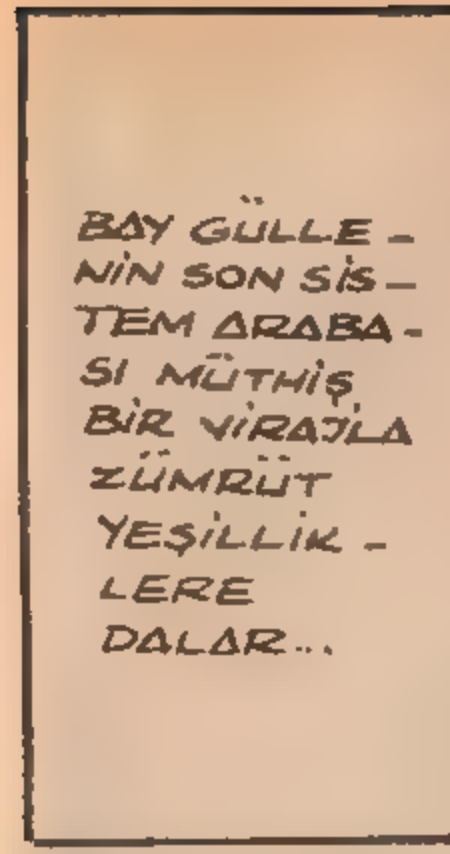 BAY GÜLLE -
NİN SON SİS -
TEM ARABA -
SI MÜTHİŞ
BİR VİRAJLA
ZÜMRÜT
YEŞİLLİK -
LERE
DALAR...